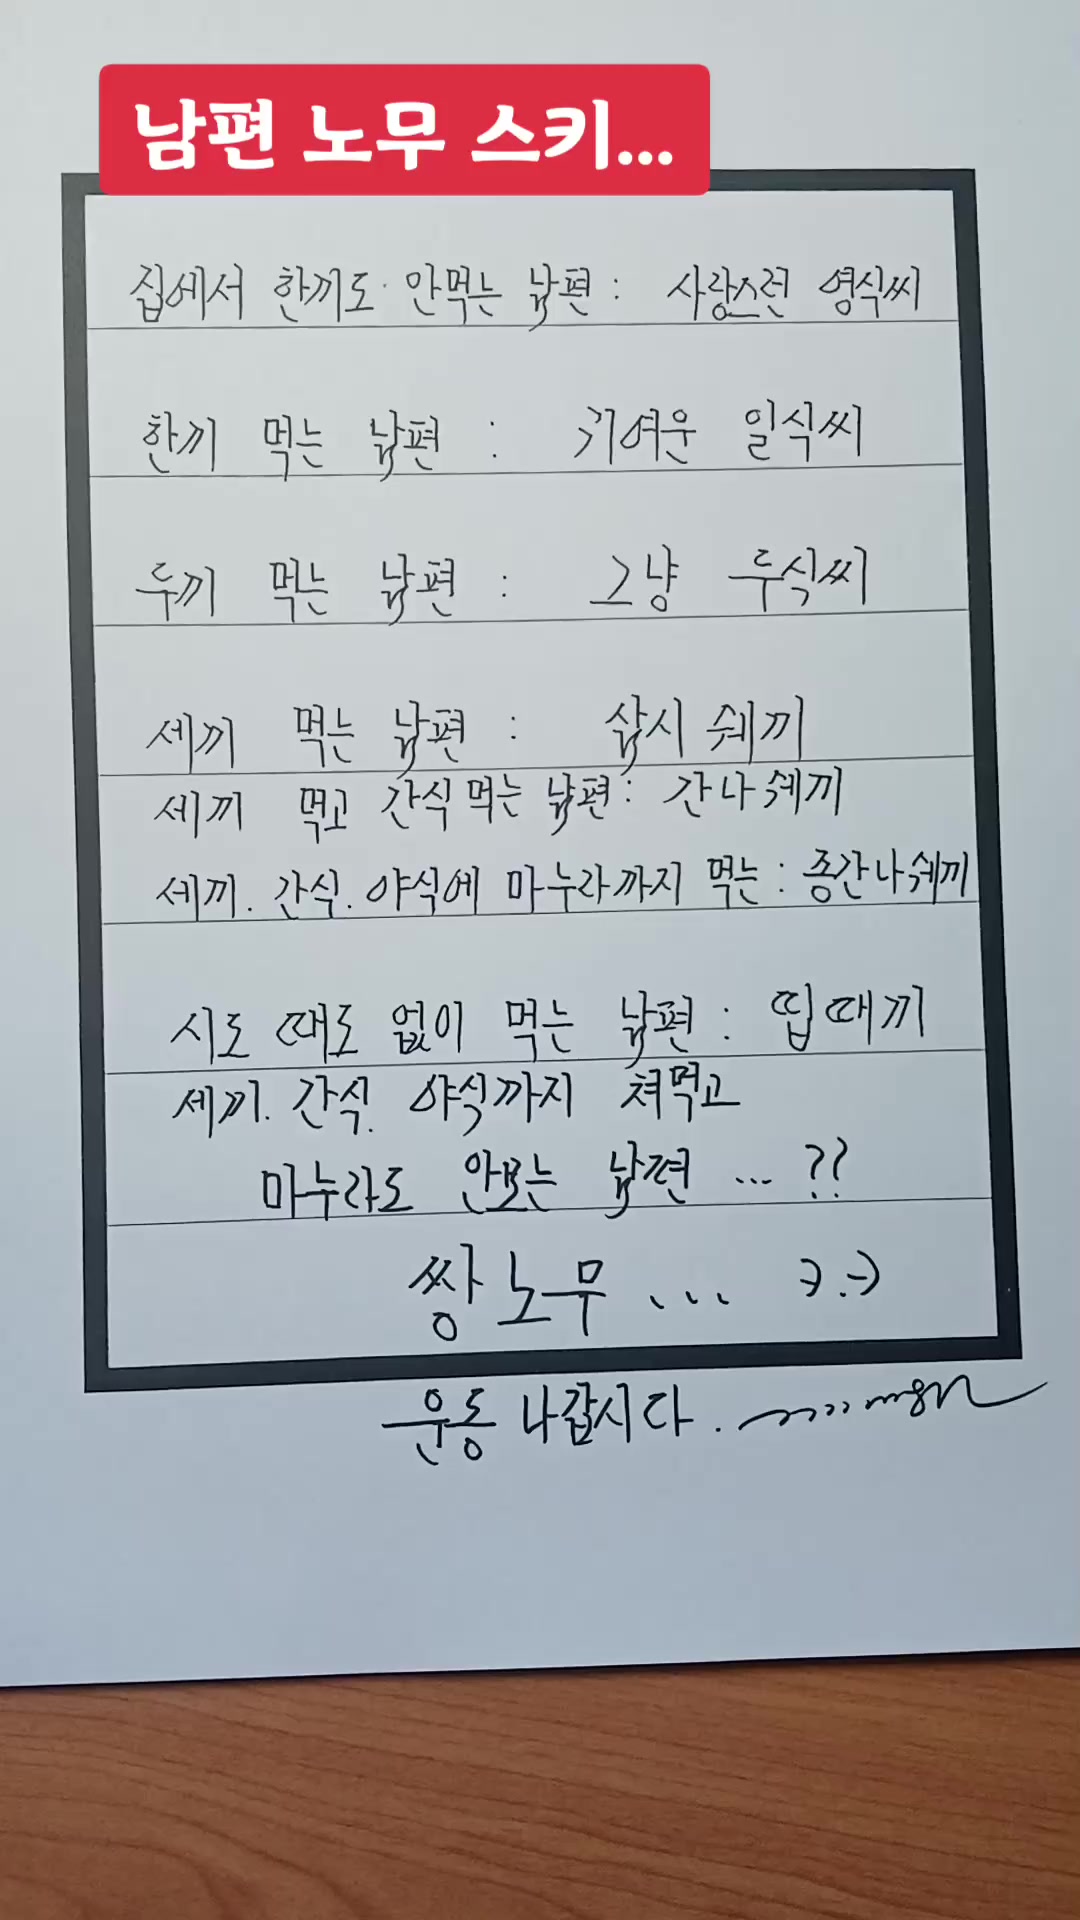 남편 노무 스키...
집에서 한끼도 안먹는 남편 : 사랑스런 영식씨
한끼 먹는 남편 : 귀여운 일식씨
두끼 먹는 남편 : 그냥 두식씨
세끼 먹는 남편 : 삼시 쉐끼
세끼 먹고 간식 먹는 남편 : 간나쉐끼
세끼. 간식. 야식에 마누라까지 먹는 : 종간나쉐끼
시도 때도 없이 먹는 남편 : 띱때끼
세끼. 간식. 야식까지 쳐먹고
마누라도 안보는 남편 ... ??
쌍노무 ...
운동 나갑시다.